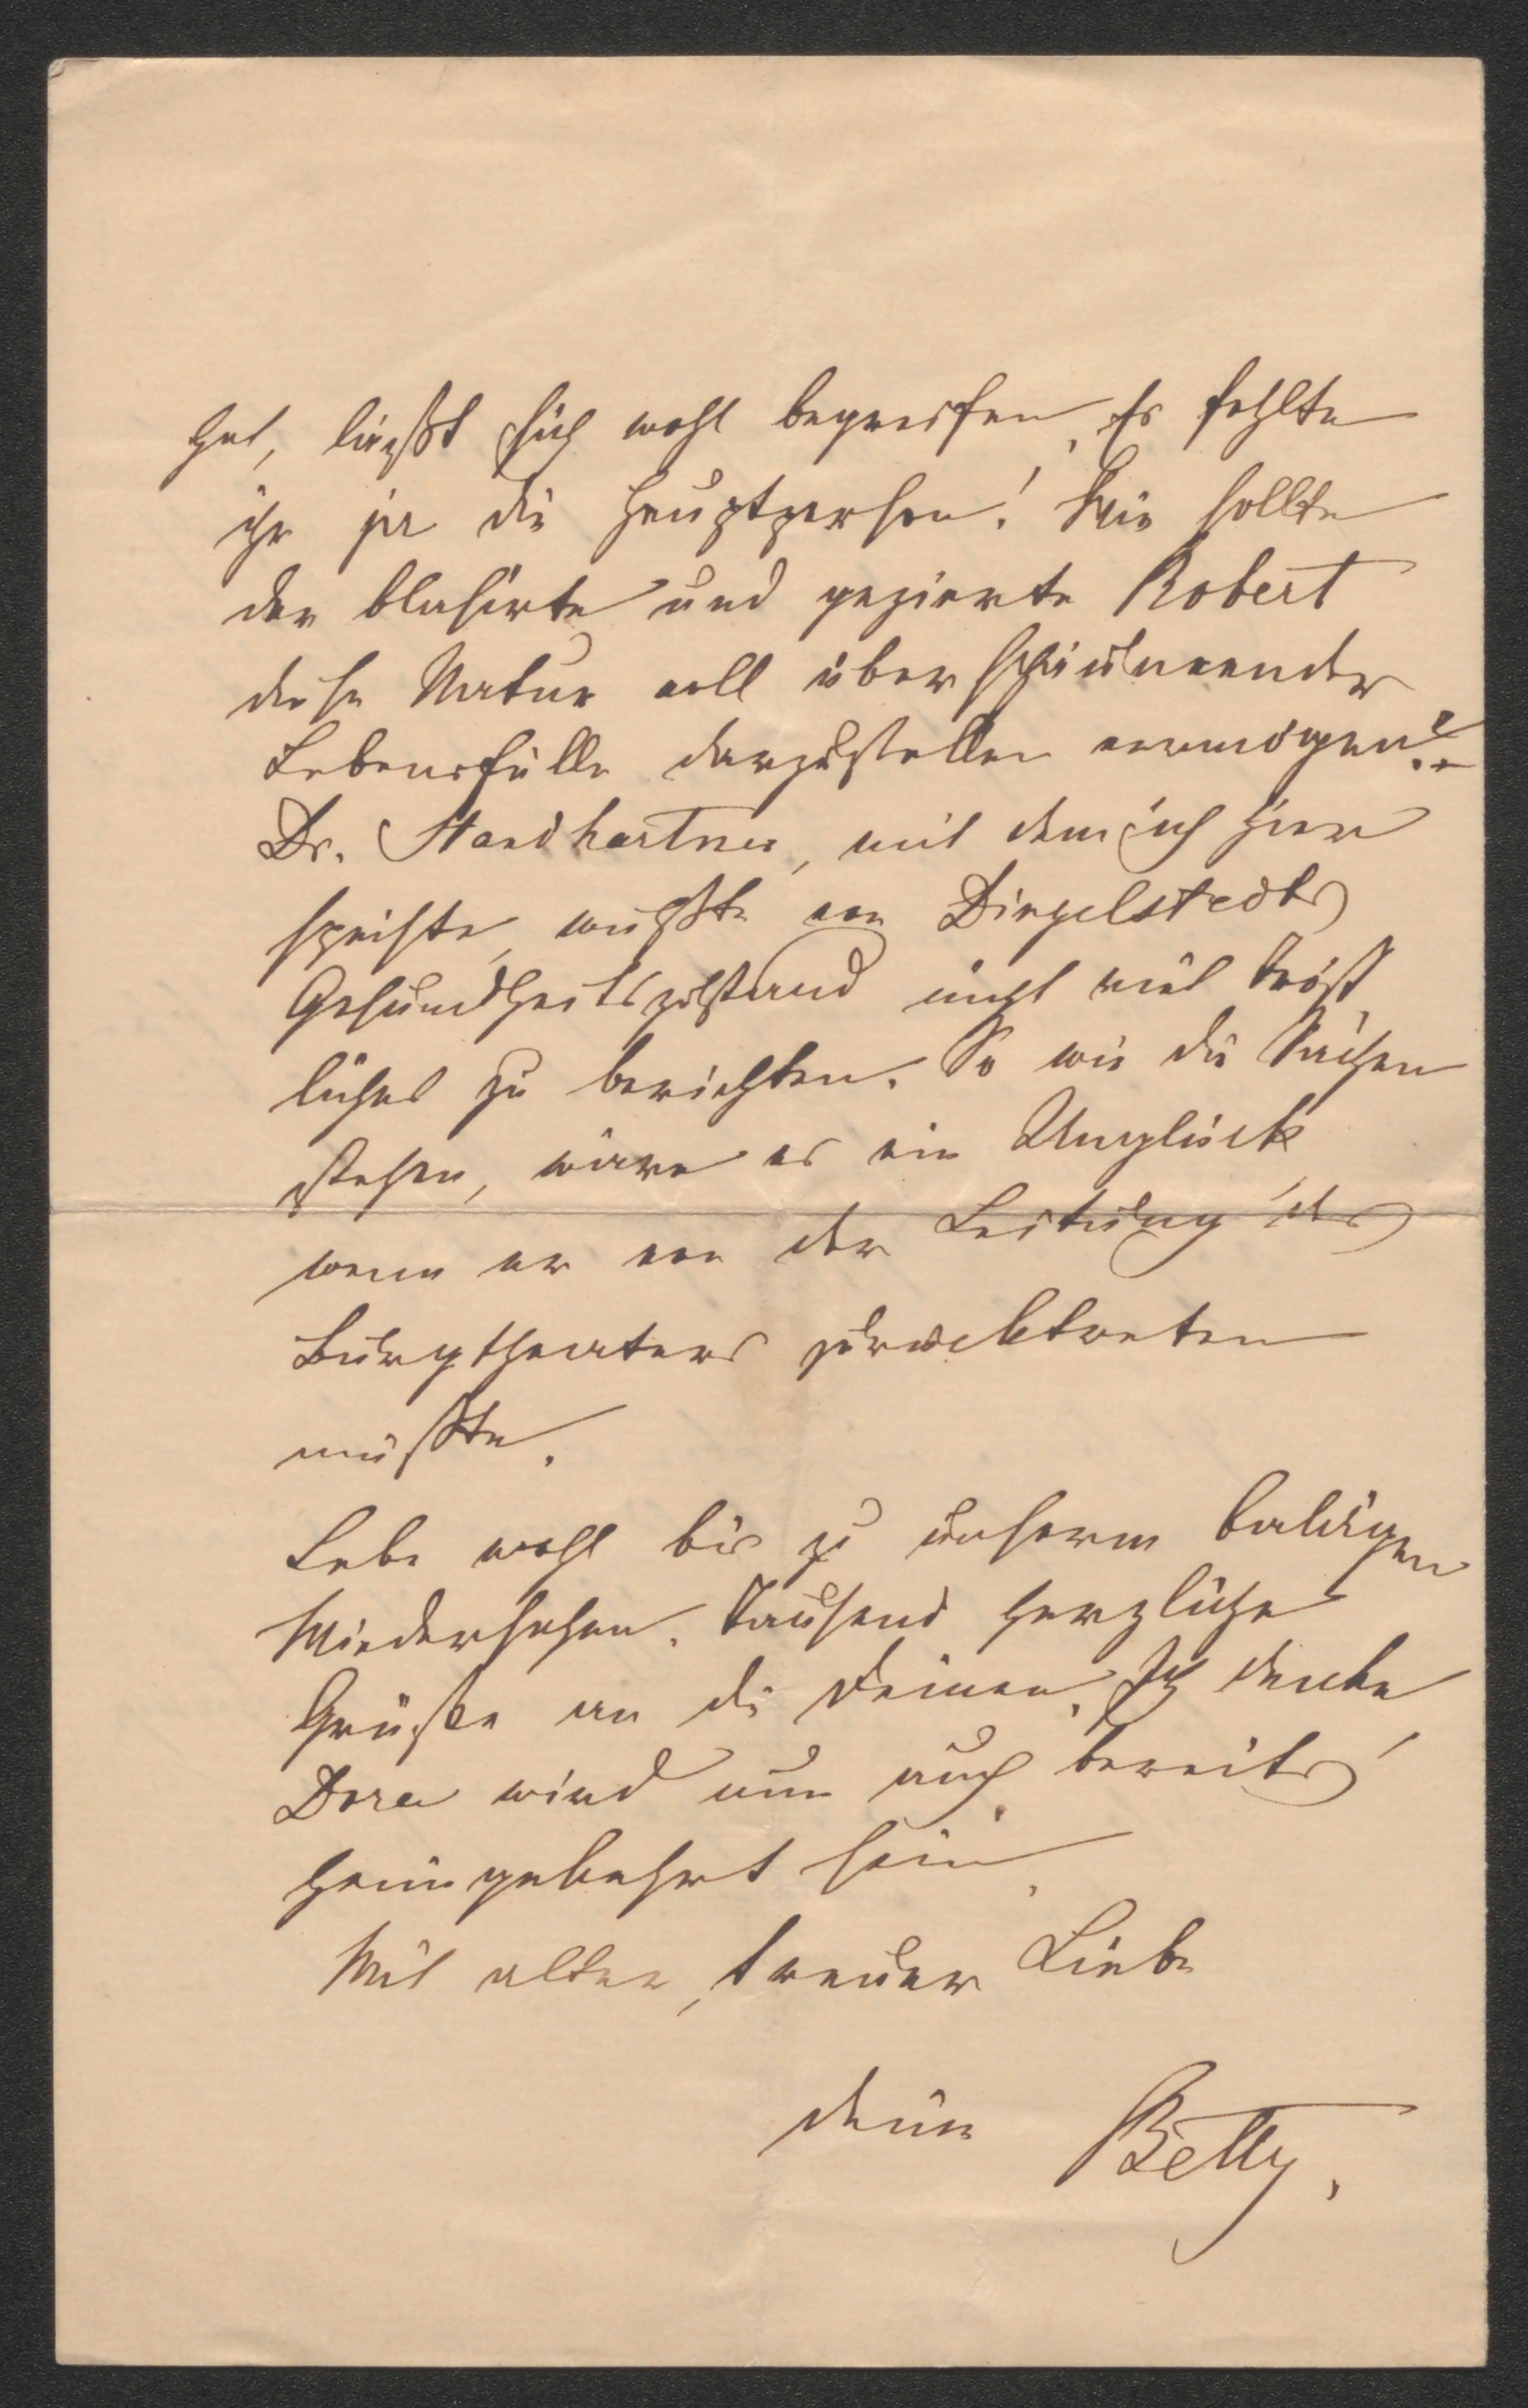 hat, läßt sich wohl begreifen. Es fehlte
ihr ja die Hauptperson! Wie sollte
der blasirte und gezierte Robert
diese Natur voll überschäumender
Lebensfülle darzustellen vermögen? –
Dr. Standhartner, mit dem ich hier
speiste, wußte von Dingelstedts
Gesundheitszustand nicht viel tröst
liches zu berichten. So wie die Sachen
stehen, wäre es ein Unglück
wenn er von der Leitung des
Burgtheaters zurücktreten
müßte.
Lebe wohl bis zu unserm baldigen
Wiedersehen. Tausend herzliche
Grüße an die Deinen. Ich denke
Dora wird nun auch bereits
heimgekehrt sein.
Mit alter, treuer Liebe
deine Betty.